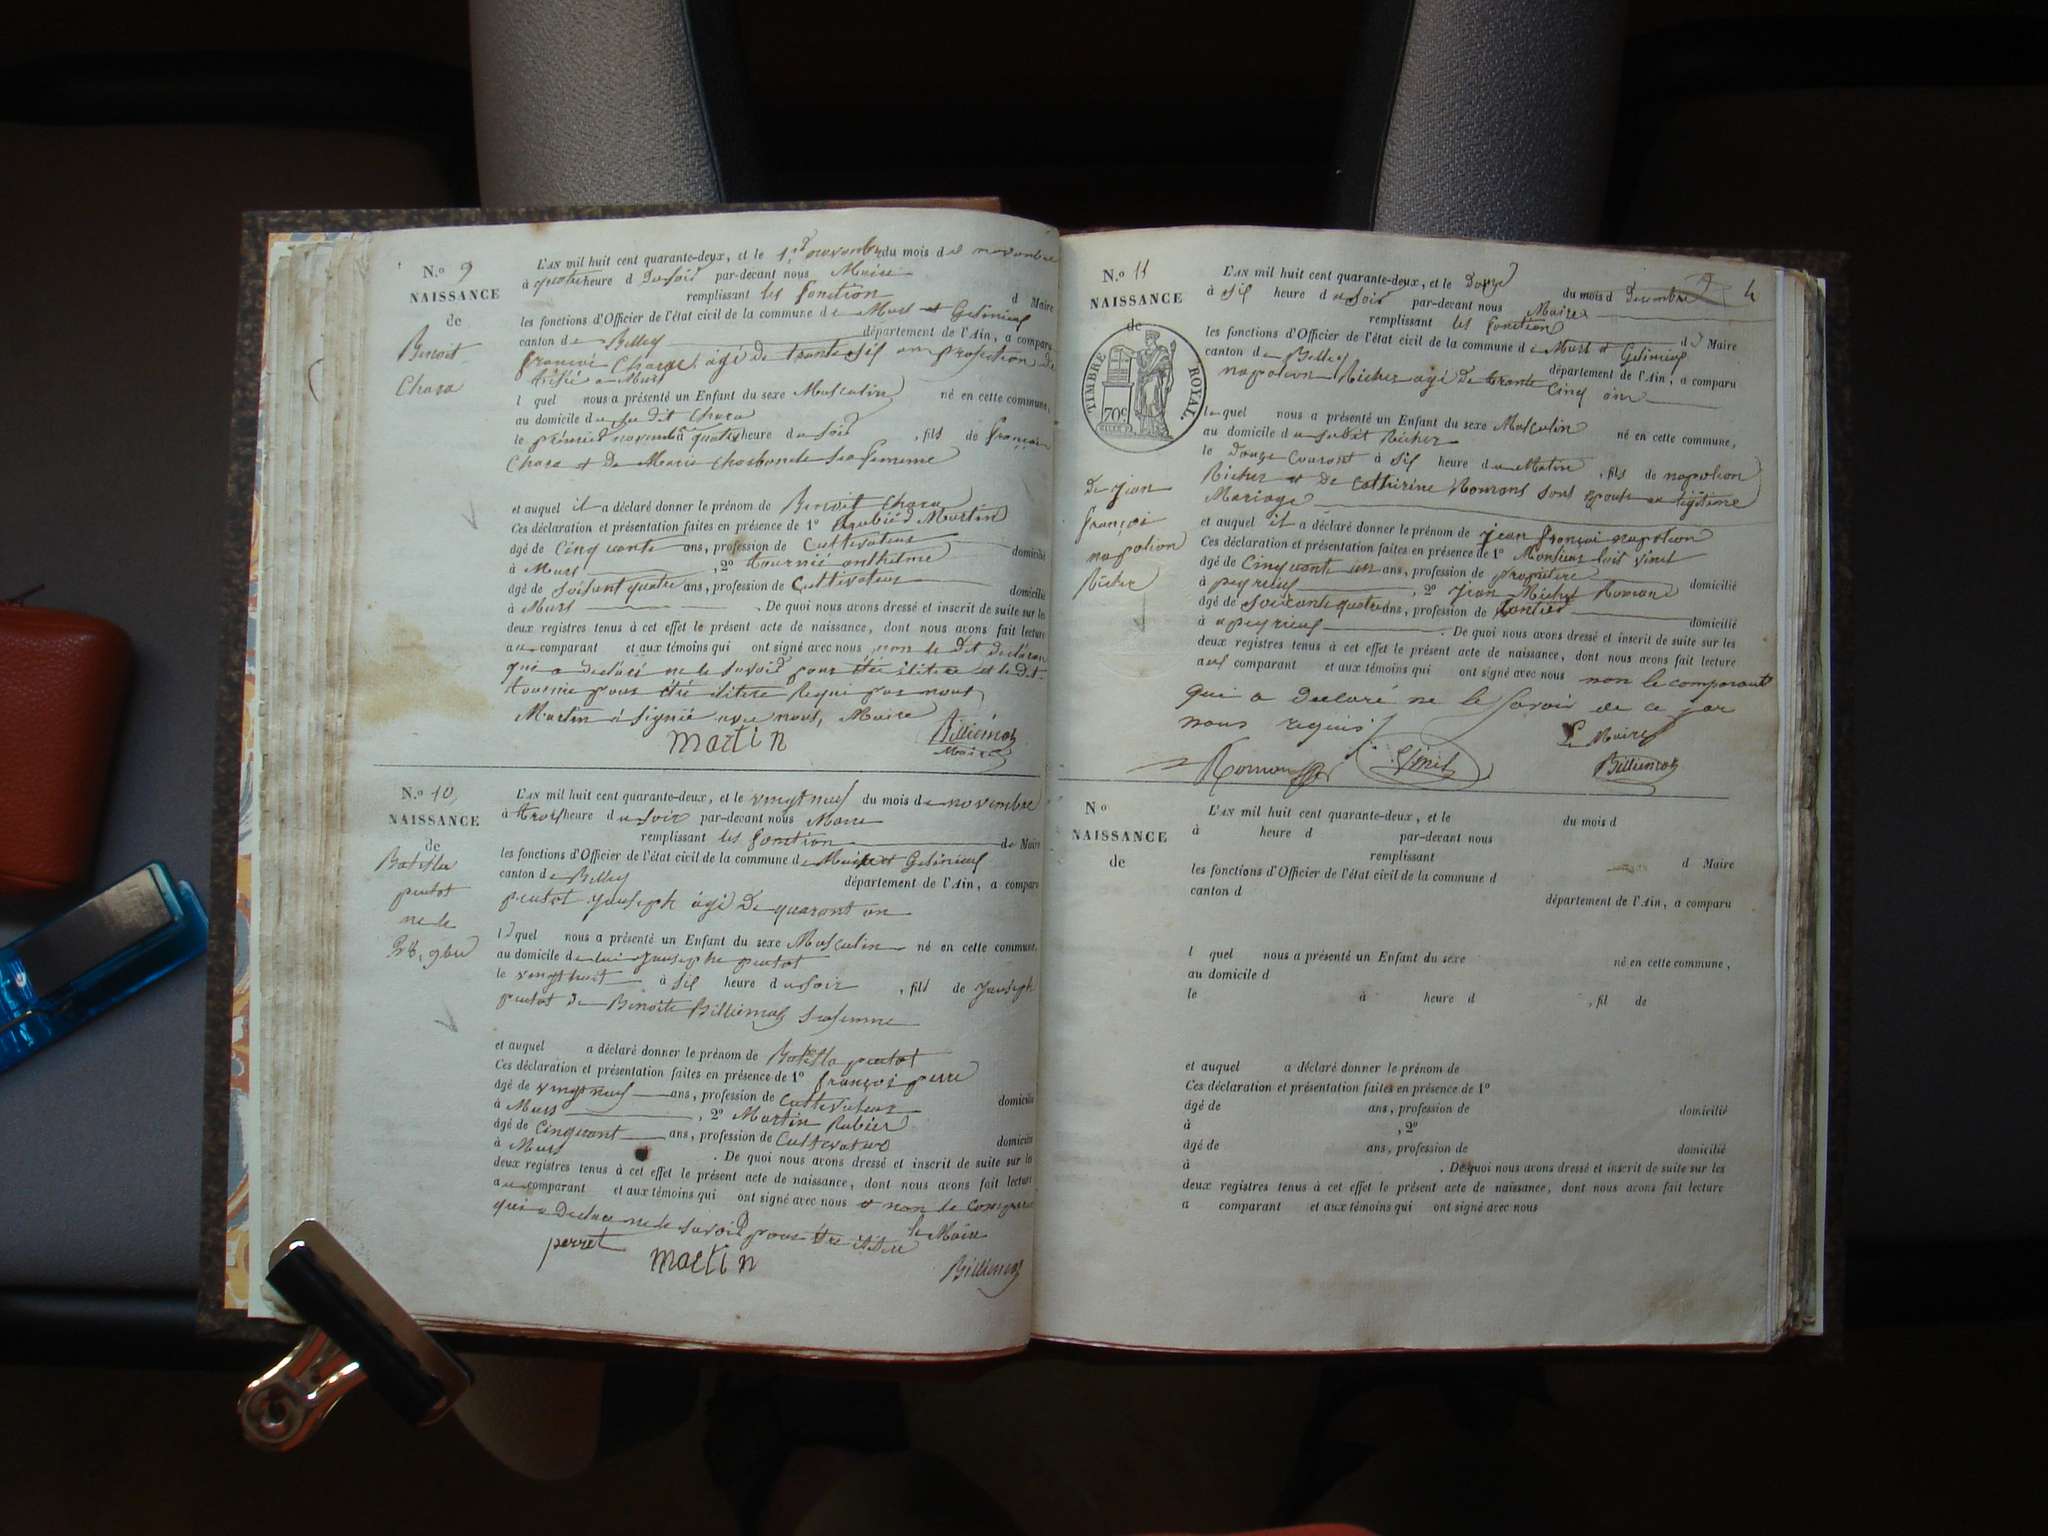 N.º 9
NAISSANCE
de
Benoit
Chara
L'AN mil huit cent quarante-deux, et le 1er novembre du mois de novembre
à quatre heure du soir par-devant nous Maire
remplissant les fonction d Maire
les fonctions d'Officier de l'état civil de la commune de Murs et Gelinieux
canton de Belley département de l'Ain, a comparu
françoi Chara âgé de trente six an profection de
à Murs
l quel nous a présenté un Enfant du sexe Masculin né en cette commune,
au domicile du su dit Chara
le premier novembre à quatre heure du soir, fils de françoi
Chara et De Marie Charbonde sa femme
et auquel il a déclaré donner le prénom de Benoit Chara
Ces déclaration et présentation faites en présence de 1º Martin
âgé de Cinquante ans, profession de Cultivateur domicilié
à Murs, 2º tournié anthelme
âgé de soisant quatre ans, profession de Cultivateur domicilié
à Murs. De quoi nous avons dressé et inscrit de suite sur les
deux registres tenus à cet effet le présent acte de naissance, dont nous avons fait lecture
au comparant et aux témoins qui ont signé avec nous non le dit declaran
qui a déclaré ne le savoir pour être ilitere et le dit
tournie pour être ilitere Requi par nous
Martin à signié avec nous, Maire
martin Billiemaz
Maire
N.º 10
NAISSANCE
de
Batista
peutot
ne le
28, 9bre
L'AN mil huit cent quarante-deux, et le vingt neuf du mois de novembre
à trois heure du soir par-devant nous Maire
remplissant les fonction de Maire
les fonctions d'Officier de l'état civil de la commune de Murs et Gelinieux
canton de Belley département de l'Ain, a comparu
peutot Jouseph âgé De quarant an
l quel nous a présenté un Enfant du sexe Masculin né en cette commune,
au domicile de lui Jouseph peutot
le vingt huit à six heure du soir, fils de Jouseph
peutot de Benoite Billiemaz sa femme
et auquel a déclaré donner le prénom de Batista peutot
Ces déclaration et présentation faites en présence de 1º françoi perre
âgé de vingt neuf ans, profession de Cultivateur domicilié
à Murs, 2º Martin Rubier
âgé de Cinquant ans, profession de Cultivateur domicilié
à Murs. De quoi nous avons dressé et inscrit de suite sur les
deux registres tenus à cet effet le présent acte de naissance, dont nous avons fait lecture
au comparant et aux témoins qui ont signé avec nous et non le Comparant
qui a Declaré ne le savoir pour être ilitere le Maire
perret martin Billiemaz
4
N.º 11
NAISSANCE
de
TIMBRE ROYAL.
70c.
De Jean
françoi
napolion
Richer
L'AN mil huit cent quarante-deux, et le Douze du mois d Decembre
à six heure du soir par-devant nous Maire
remplissant les fonction d Maire
les fonctions d'Officier de l'état civil de la commune de Murs et Gelinieux
canton de Belley département de l'Ain, a comparu
napolion Richer âgé de trante Cinq ans
le quel nous a présenté un Enfant du sexe Masculin né en cette commune,
au domicile du sudit Richer
le Douze Courant à six heure du Matin, fils de napolion
Richer et de Catthirine Romans sont epoute en legitime
Mariage
et auquel il a déclaré donner le prénom de Jean françoi napolion
Ces déclaration et présentation faites en présence de 1º Monsieur Vinit
âgé de Cinquante un ans, profession de propritere domicilié
à peyrieux, 2º Jean Michel Roman
âgé de soixante quatre ans, profession de domicilié
à a peyrieux. De quoi nous avons dressé et inscrit de suite sur les
deux registres tenus à cet effet le présent acte de naissance, dont nous avons fait lecture
aux comparant et aux témoins qui ont signé avec nous non le comparant
qui a Declaré ne le savoir de ce par
nous requis
Le Maire
Roman Vinit Billiemaz
N º
NAISSANCE
de
L'AN mil huit cent quarante-deux, et le du mois d
à heure d par-devant nous
remplissant d Maire
les fonctions d'Officier de l'état civil de la commune d
canton d département de l'Ain, a comparu
l quel nous a présenté un Enfant du sexe né en cette commune,
au domicile d
le à heure d , fil de
et auquel a déclaré donner le prénom de
Ces déclaration et présentation faites en présence de 1º
âgé de ans, profession de domicilié
à , 2º
âgé de ans, profession de domicilié
à . De quoi nous avons dressé et inscrit de suite sur les
deux registres tenus à cet effet le présent acte de naissance, dont nous avons fait lecture
a comparant et aux témoins qui ont signé avec nous